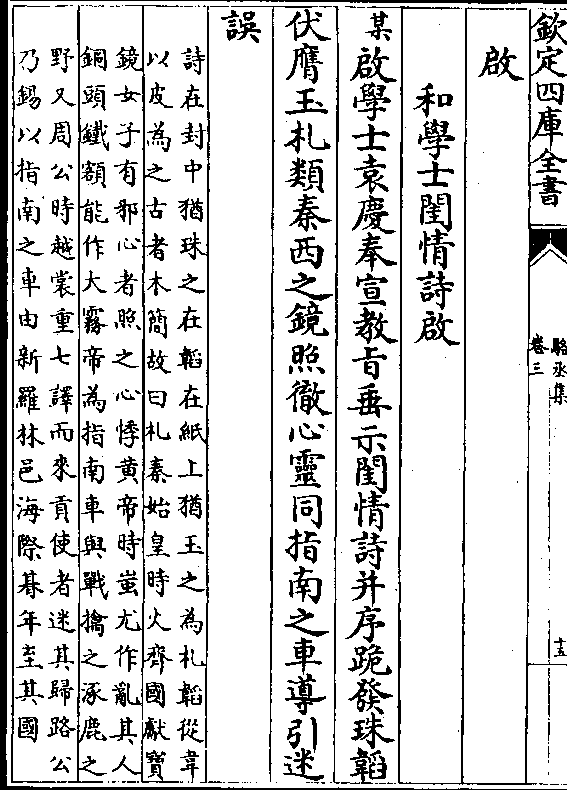 欽定四庫全書
駱丞集
卷三
十五
啟
和學士閨情詩啟
某啟學士袁慶奉宣教旨垂示閨情詩并序跪發珠韜
伏膺玉札類秦西之鏡照徹心靈同指南之車導引迷
誤
詩在封中猶珠之在韜在紙上猶玉之為札韜從韋
以皮為之古者木簡故曰札秦始皇時火齊國獻寶
鏡女子有邪心者照之心悸黃帝時蚩尤作亂其人
銅頭鐵額能作大霧帝為指南車與戰擒之涿鹿之
野又周公時越裳重七譯而來貢使者迷其歸路公
乃錫以指南之車由新羅林邑海際朞年至其國